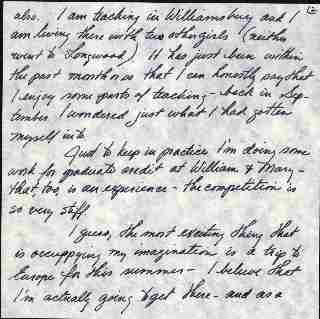 12
also. I am teaching in Williamsburg and I
am living there with two other girls (neither
went to Longwood). It has just been within
the past month or so that I can honestly say that
I enjoy some parts of teaching - back in Sep-
tember I wondered just what I had gotten
myself into.
Just to keep in practice I'm doing some
work for graduate credit at William & Mary -
that, too, is an experience - the competition is
so very stiff.
I guess, the most exciting thing that
is occuppying my imagination is a trip to
Europe for this summer - I believe that
I'm actually going to get there - and as a